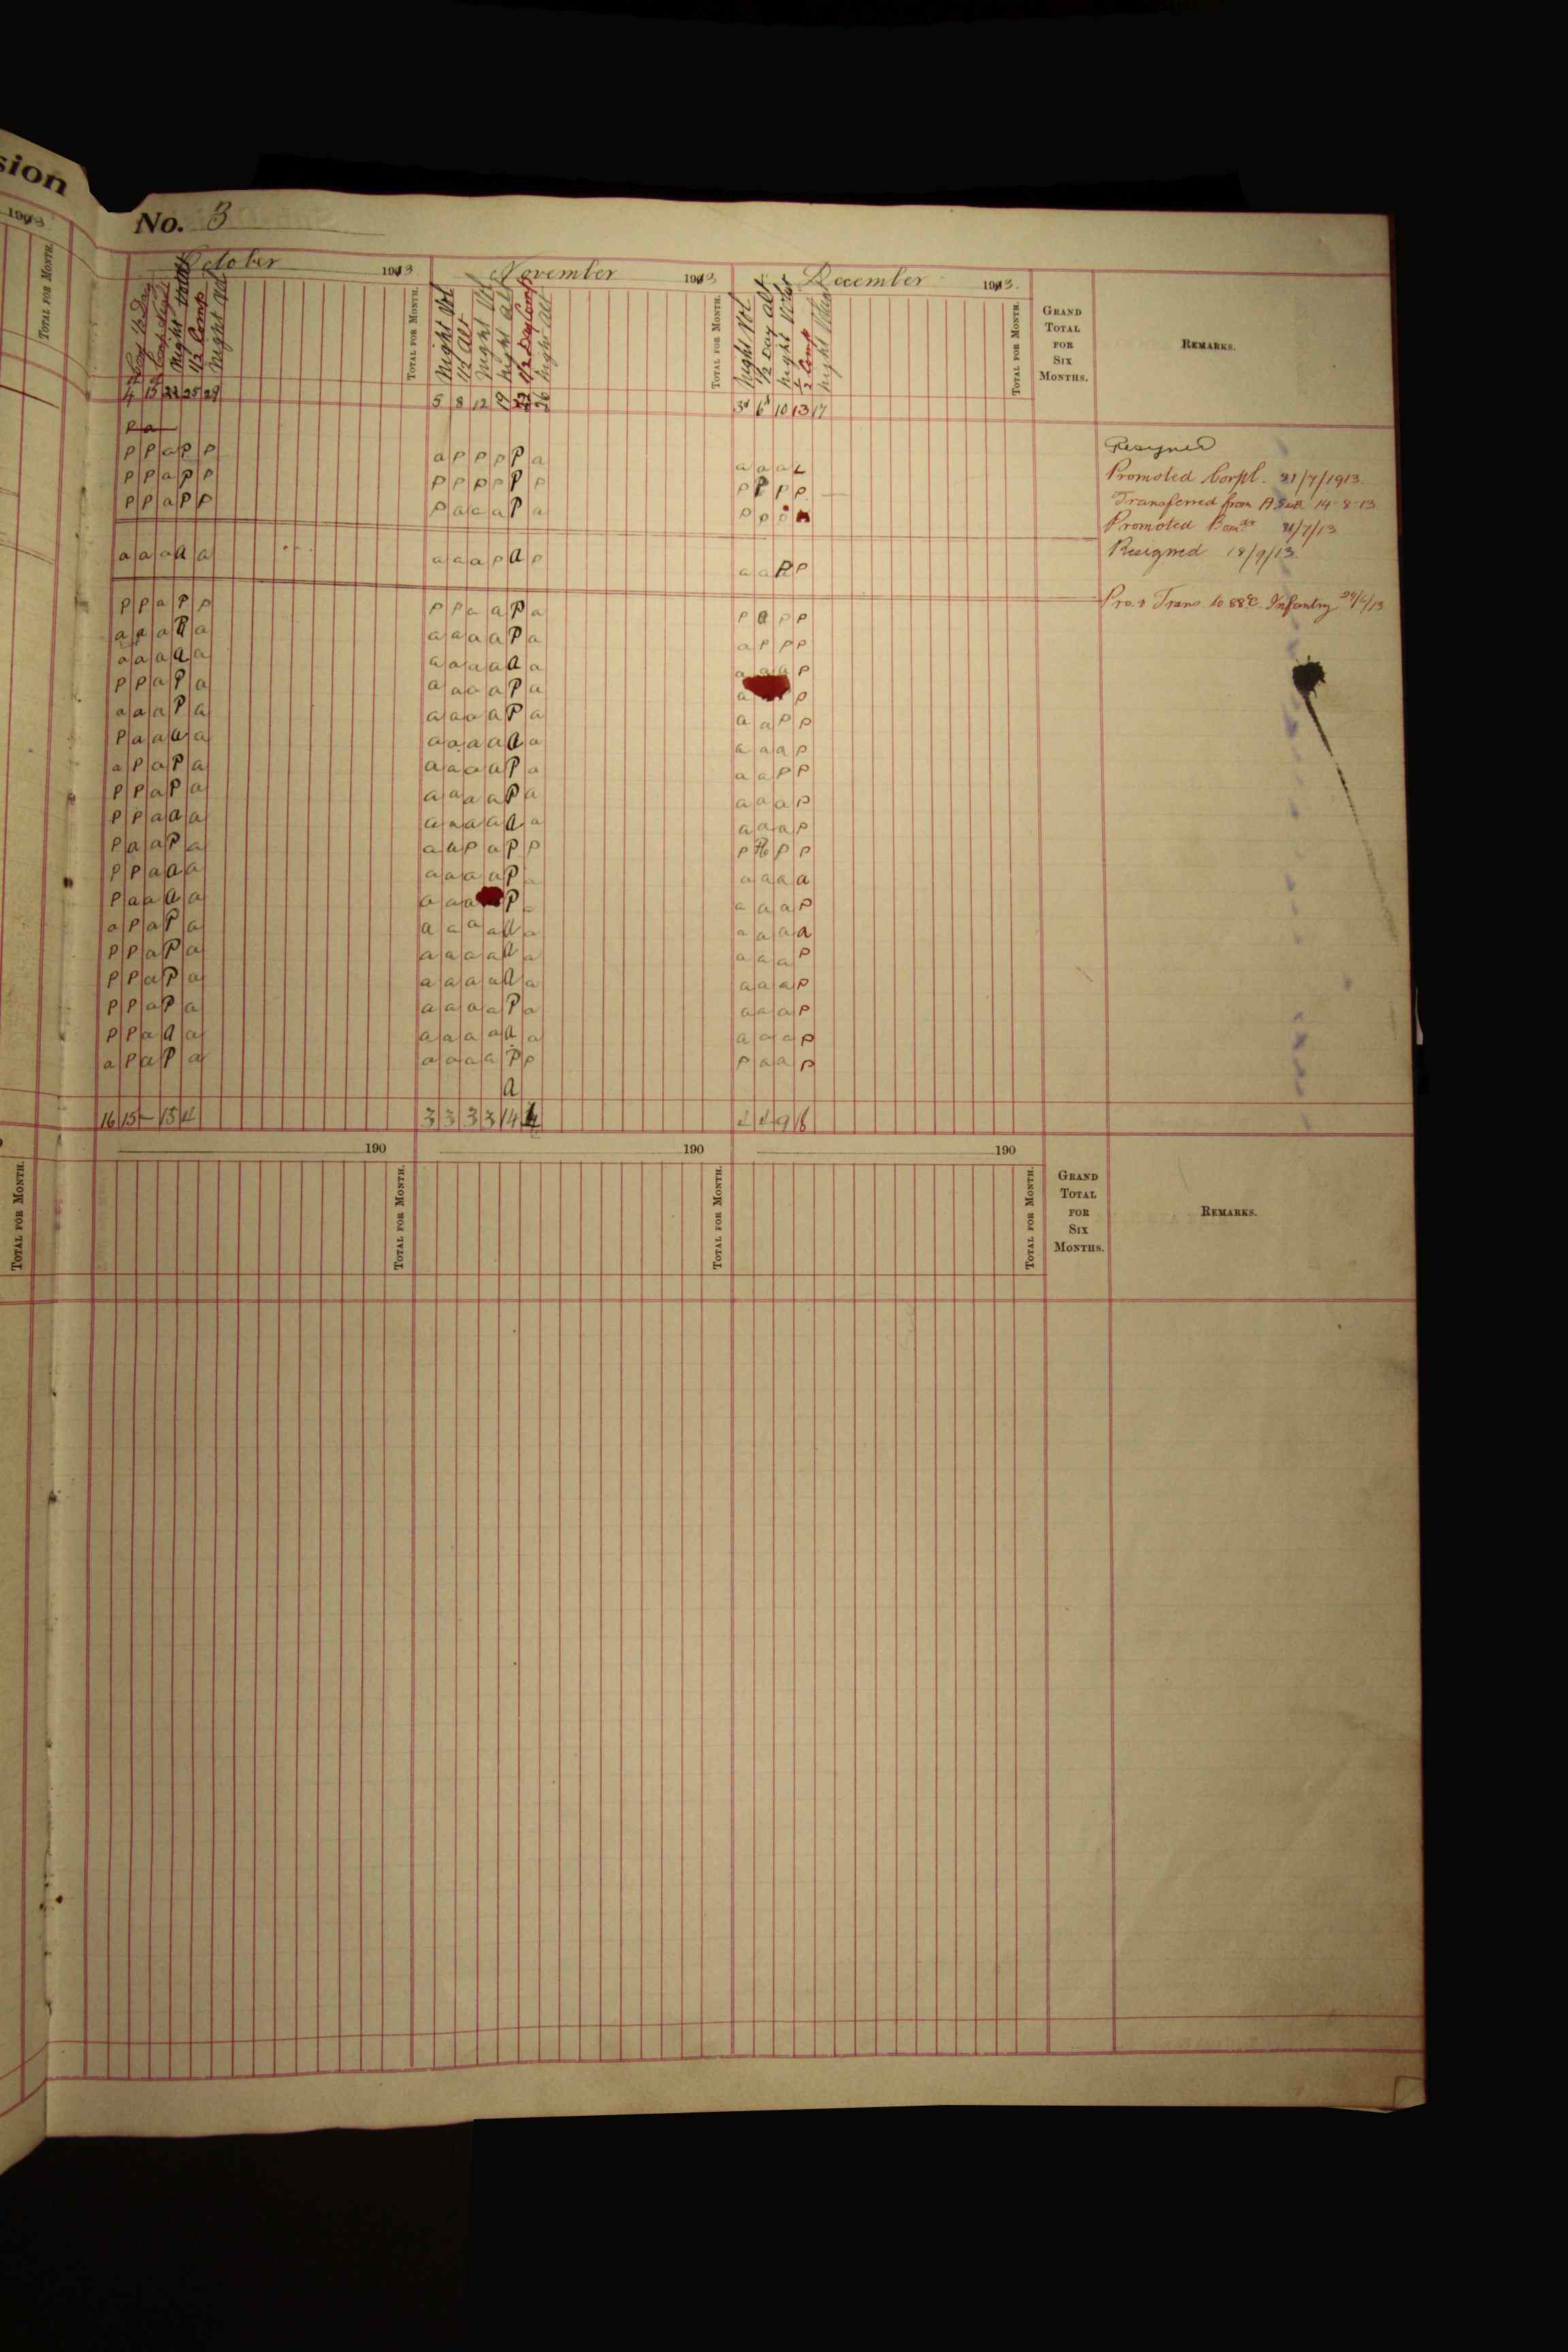 sion
1903
TOTAL FOR MONTH.
No. 3
October 1913
November 1913
December 1913
TOTAL FOR MONTH.
TOTAL FOR MONTH.
TOTAL FOR MONTH.
GRAND
TOTAL
FOR
SIX
MONTHS.
REMARKS.
Night
1/2 Comp
Night Vol
Night Vol
1/2 Alt
Night Vol
Night Alt
1/2 Day Comp
Night Alt
Night Vol
1/2 Day Alt
Night
1/2 Comp
Night
4 15 22 25 29
5 8 12 19 22 26
3d 6th 10 13 17
P a
P P a P P a P P P P a a a a L Resigned
P P a P P P P P P P P P P P P Promoted Corpl. 21/7/1913
P P a P P P a a a P a P P Transferred from A Sub 14-8-13
Promoted Bomdr 21/7/13
a a a a a a a a P a P a a P P Resigned 18/9/13
P P a P P P P a a P a P a P P Pro. & Trans to 88th Infantry 24/6/13
a a a P a a a a a P a a P P P
a a a a a a a a a a a a a a P
P P a P a a a a a P a a P
a a a P a a a a a P a a a P P
P a a a a a a a a a a a a a P
a P a P a a a a a P a a a P P
P P a P a a a a a P a a a a P
P P a a a a a a a a a a a a P
P a a P a a a P a P P P P P
P P a a a a a a a P a a a a
P a a a a a a a P a a a P
a P a P a a a a a a a a a a a
P P a P a a a a a a a a a a P
P P a P a a a a a a a a a a P
P P a P a a a a a P a a a a P
P P a a a a a a a a a a a a P
a P a P a a a a a P P P a a P
a
16 15 – 15 4 3 3 3 3 14 4 4 4 9 16
190 190 190
TOTAL FOR MONTH.
TOTAL FOR MONTH.
TOTAL FOR MONTH.
TOTAL FOR MONTH.
GRAND
TOTAL
FOR
SIX
MONTHS.
REMARKS.